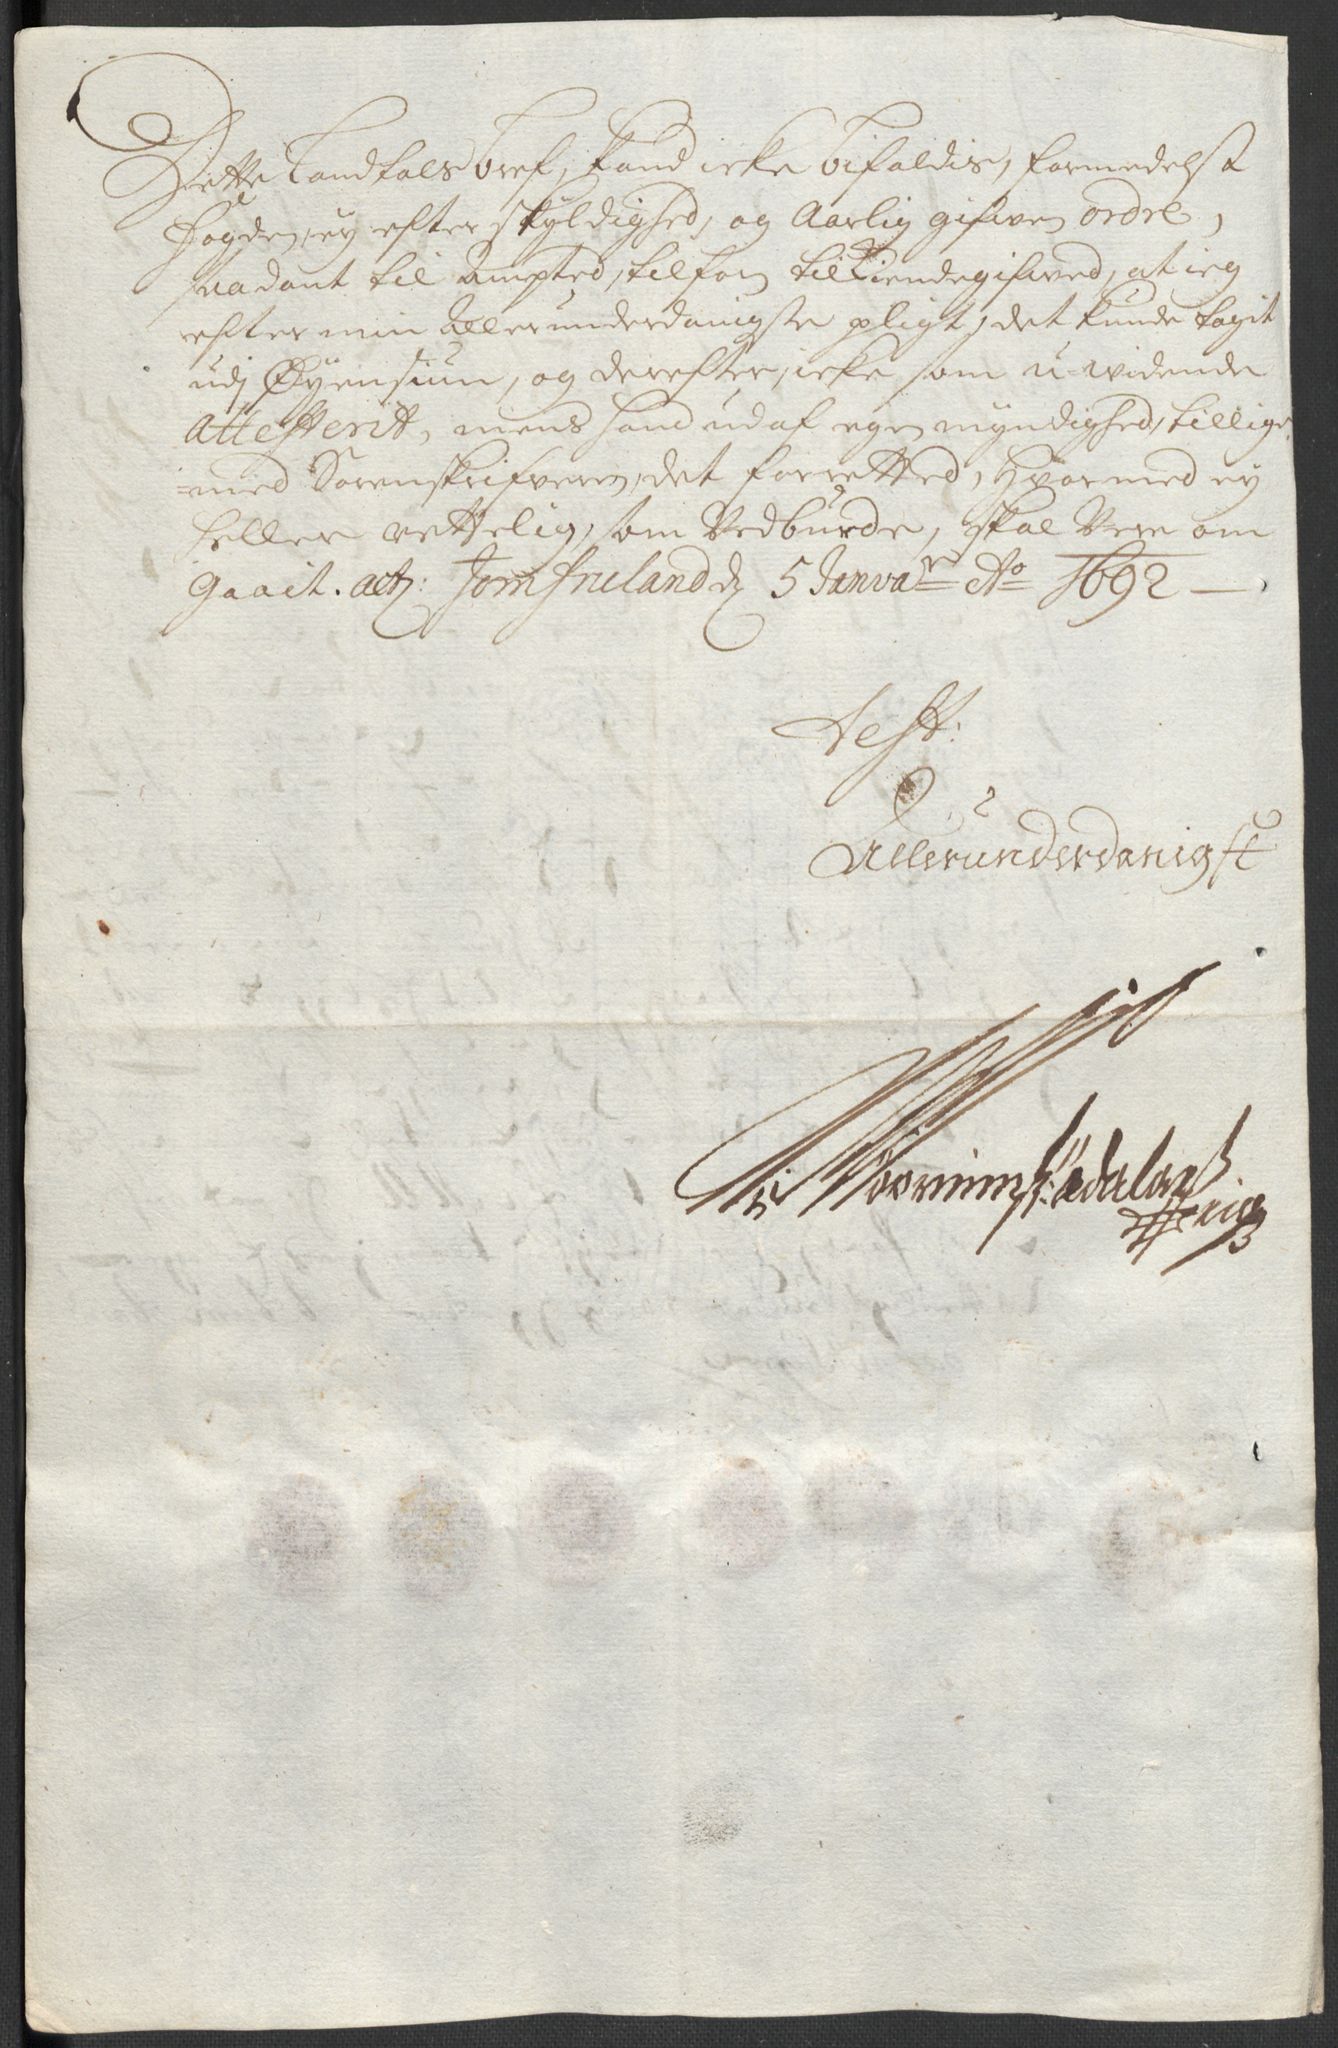 Dette Landfals bref, kand icke bifaldis, formedelst
fogden, ey efter skyldighed, og Aarlig gifven ordre,
saadant til Ampted, tilforn tilkiendegifved, at ieg
efter min Allerunderdanigste pligt, det kunde tagit
udj Øyensiun, og derefter, icke som u-widende
Attesterit, mens hand ud af egen myndighed, tillige
=med Sorenskrifveren, det forretted, Hvormed ey
heller rettelig, som Vedburde, skal Vere om
gaait. act: Jomfruland d 5 Janvar Ao 1692
Test:
Allerunderdanigst